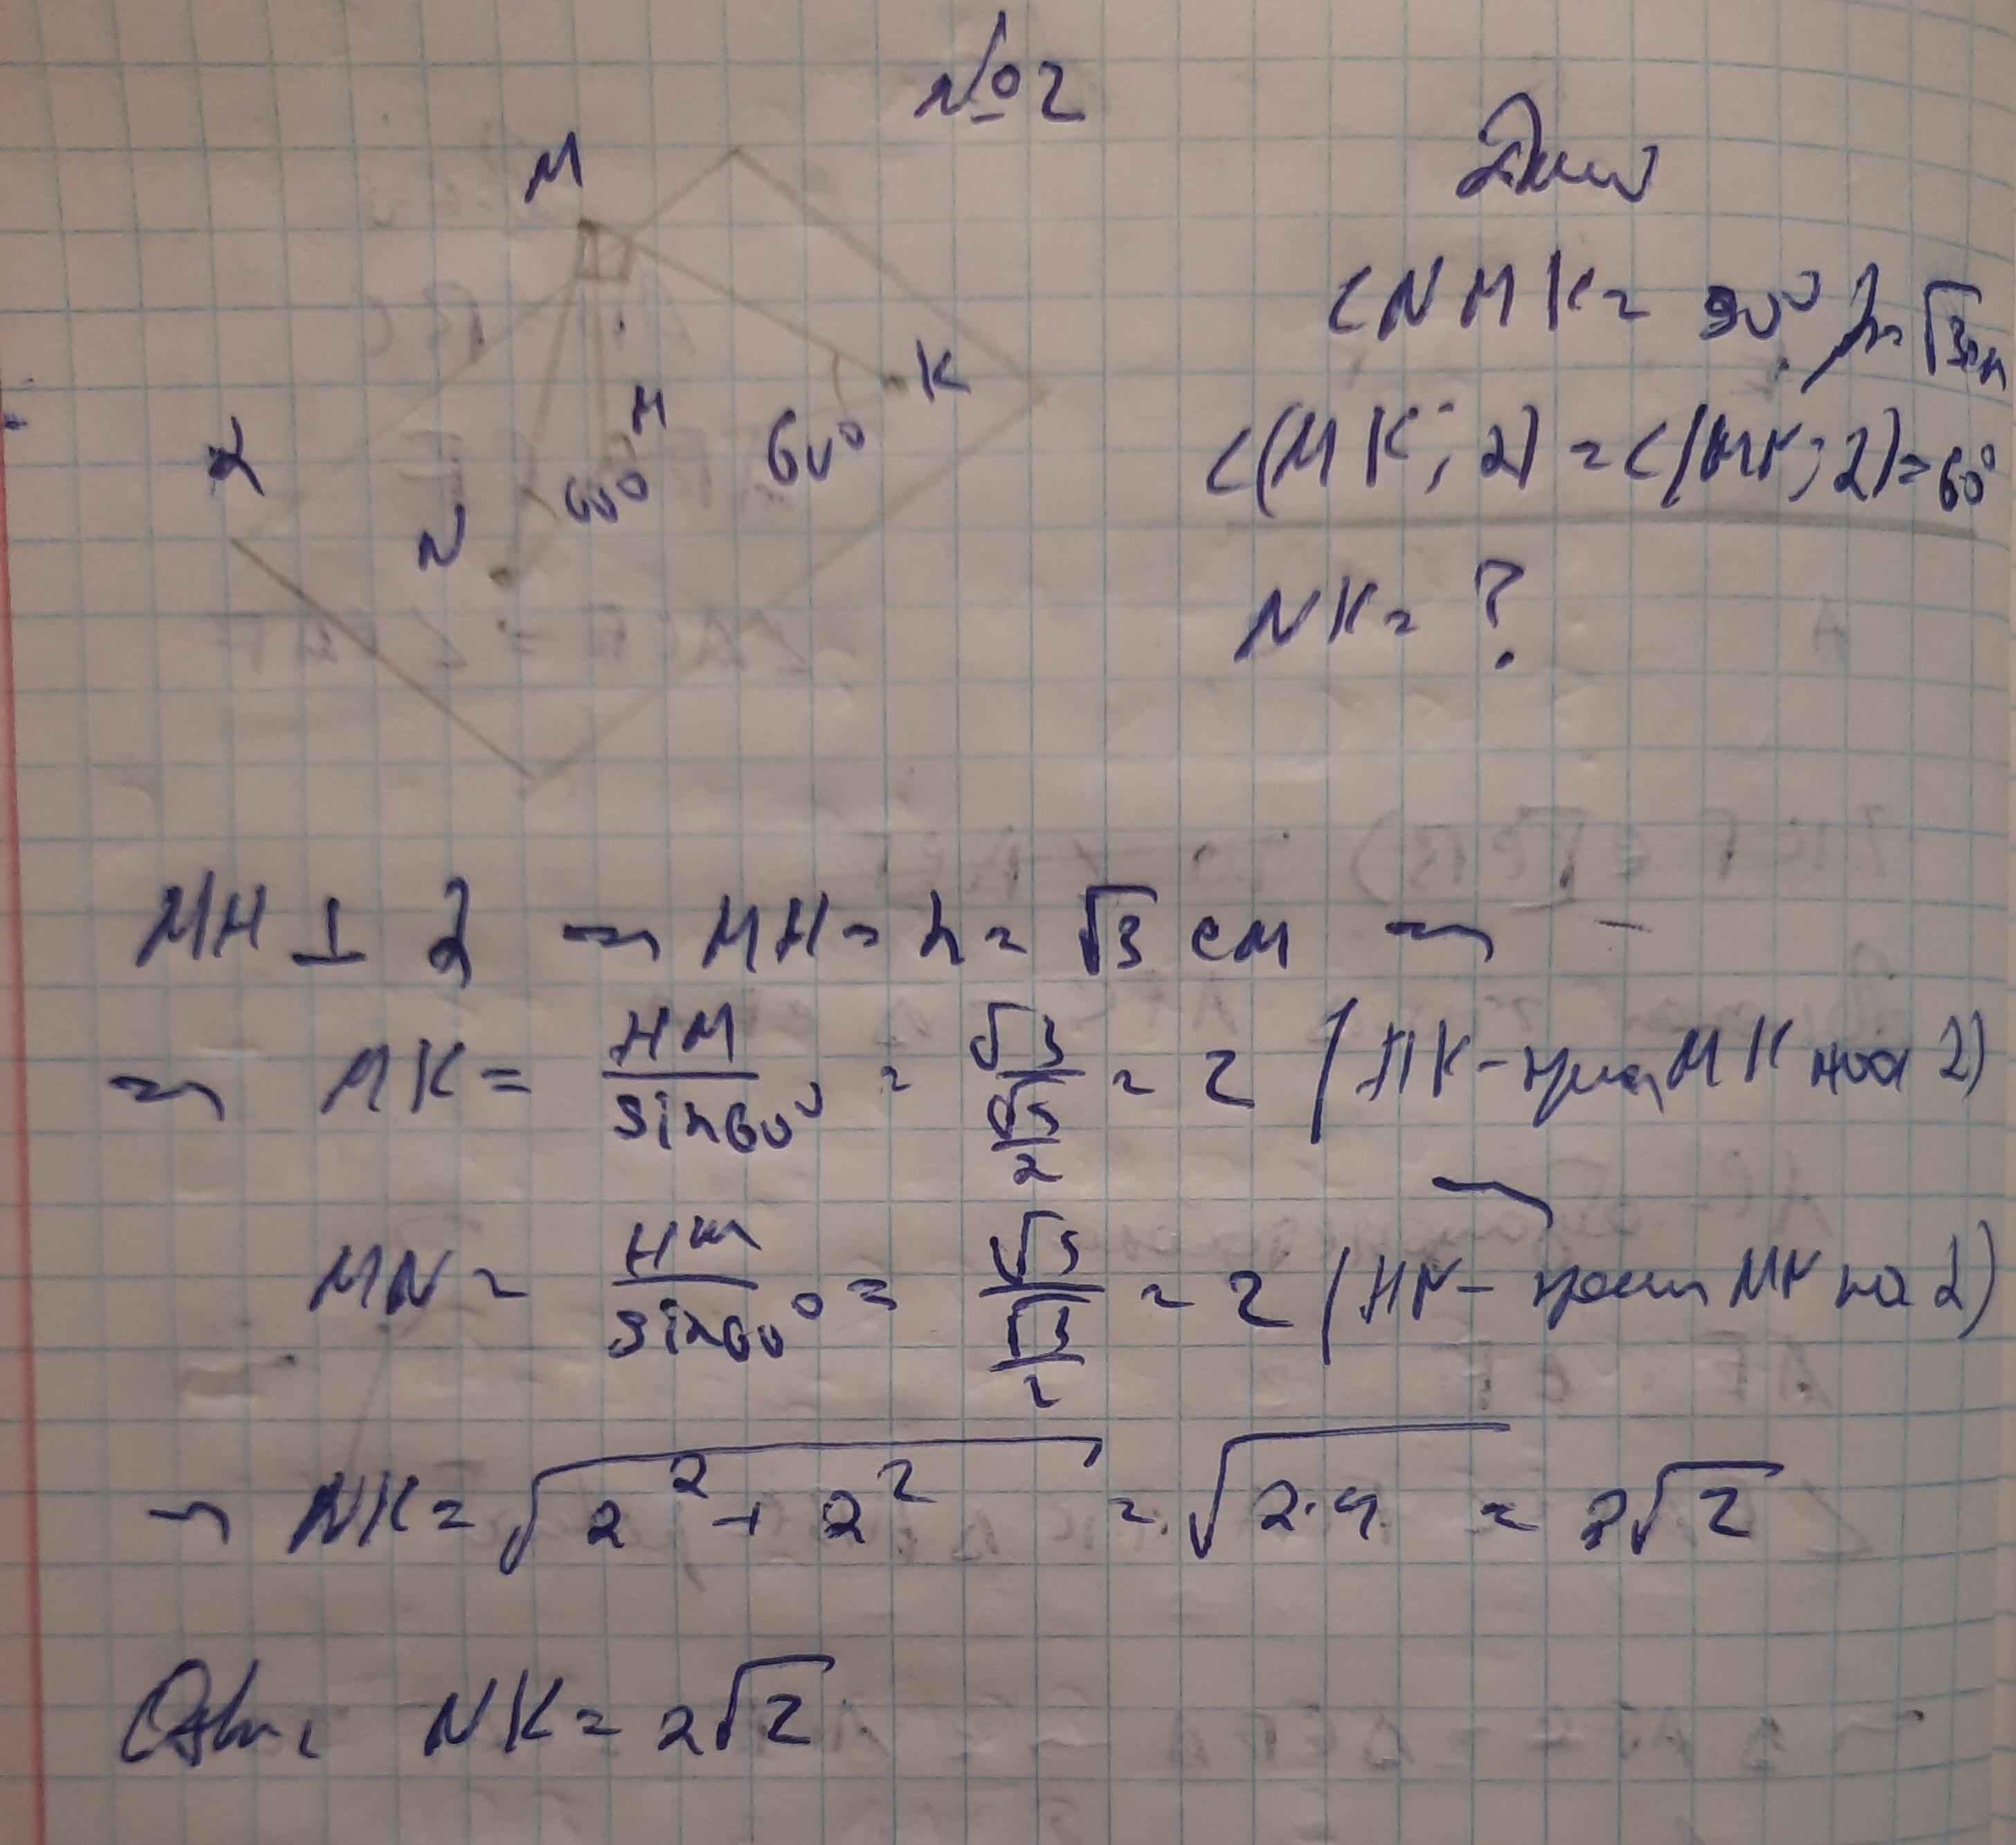 №2
Дано
∠NMK = 90° h = √3 см
∠(MK; α) = ∠(MN; α) = 60°
NK = ?
M
K
H
60°
60°
α
N
MH ⊥ α ⇒ MH = h = √3 см ⇒
⇒ MK = HM / sin60° = √3 / (√3/2) = 2 (HK - проекц MK на α)
MN = HM / sin60° = √3 / (√3/2) = 2 (HN - проекц MN на α)
⇒ NK = √(2² + 2²) = √(2·4) = 2√2
Ответ: NK = 2√2